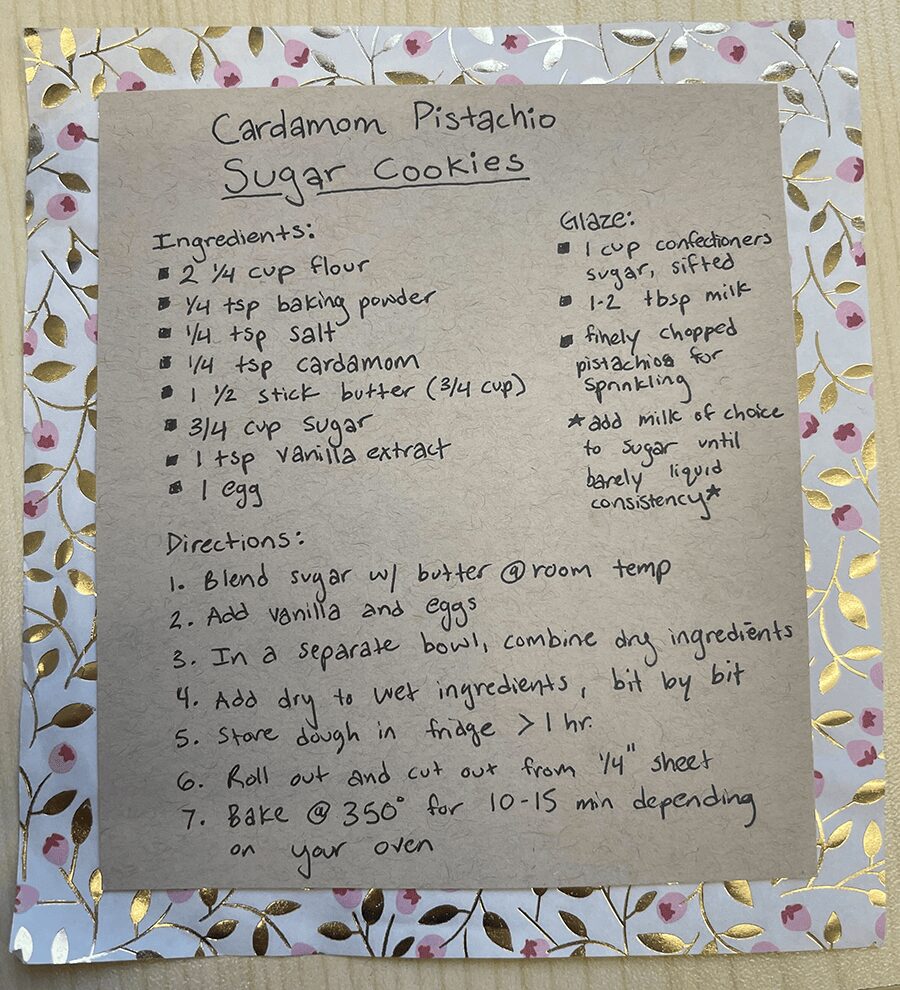 Cardamom Pistachio
Sugar Cookies
Ingredients:
▪ 2 1/4 cup flour
▪ 1/4 tsp baking powder
▪ 1/4 tsp salt
▪ 1/4 tsp cardamom
▪ 1 1/2 stick butter (3/4 cup)
▪ 3/4 cup sugar
▪ 1 tsp vanilla extract
▪ 1 egg
Glaze:
▪ 1 cup confectioners
sugar, sifted
▪ 1-2 tbsp milk
▪ finely chopped
pistachios for
sprinkling
*add milk of choice
to sugar until
barely liquid
consistency*
Directions:
1. Blend sugar w/ butter @ room temp
2. Add vanilla and eggs
3. In a separate bowl, combine dry ingredients
4. Add dry to wet ingredients, bit by bit
5. Store dough in fridge > 1 hr.
6. Roll out and cut out from 1/4" sheet
7. Bake @ 350° for 10-15 min depending
on your oven